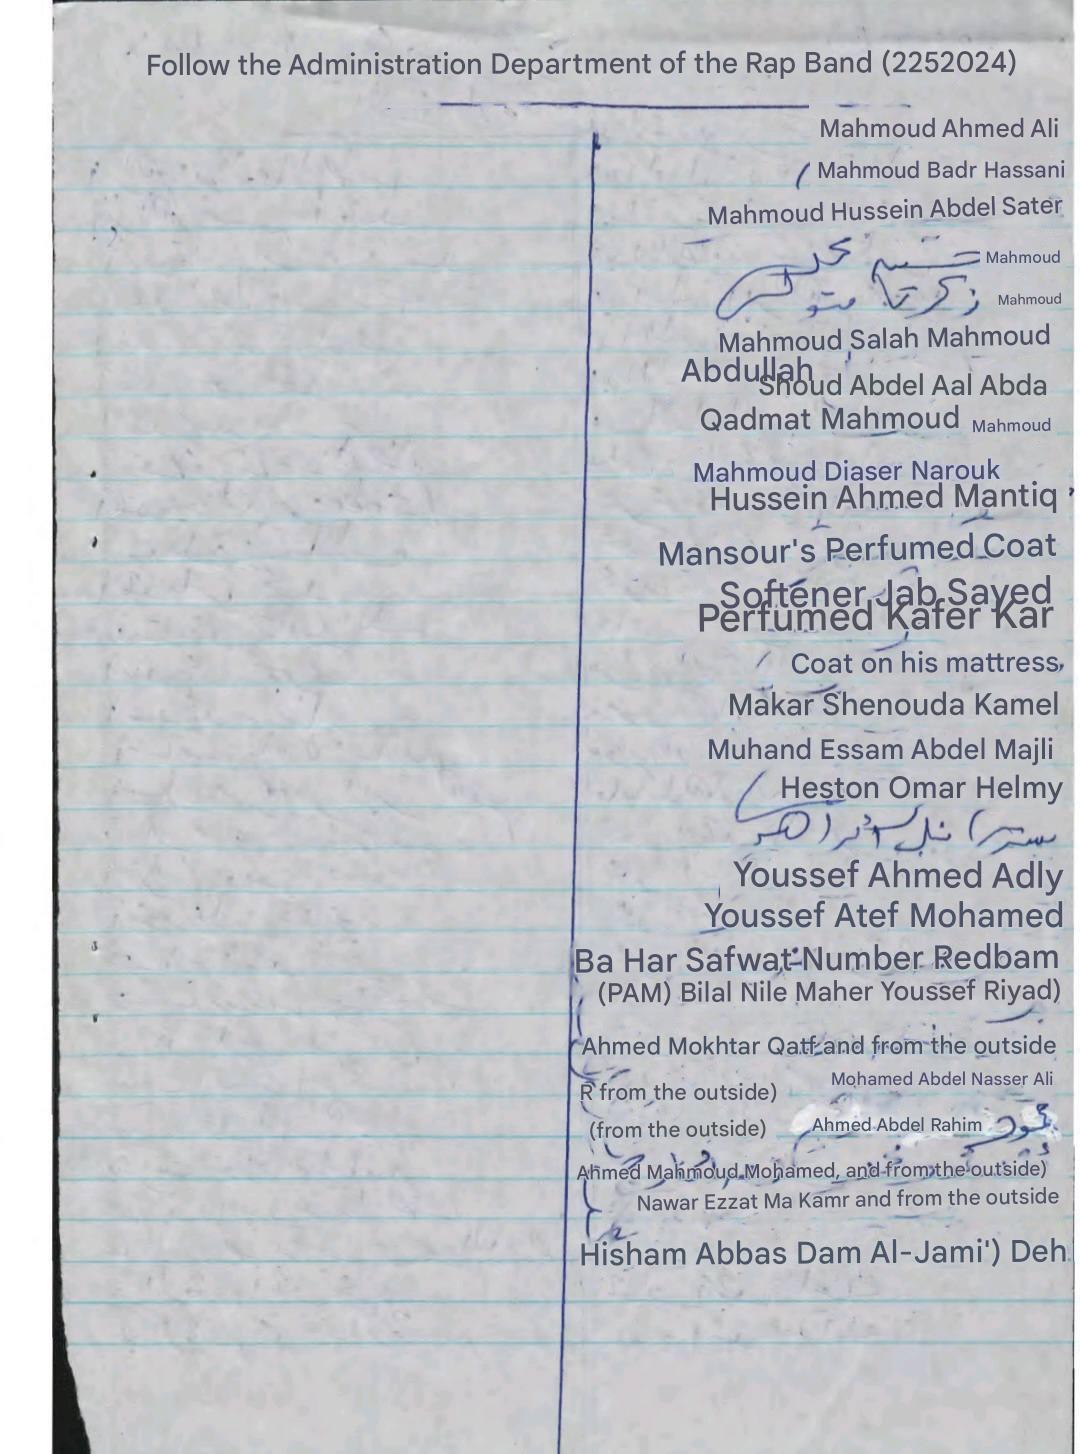 Follow the Administration Department of the Rap Band (2252024)
Mahmoud Ahmed Ali
Mahmoud Badr Hassani
Mahmoud Hussein Abdel Sater
Mahmoud
Mahmoud
Mahmoud Salah Mahmoud
Abdullah
Shoud Abdel Aal Abda
Qadmat Mahmoud Mahmoud
Mahmoud Diaser Narouk
Hussein Ahmed Mantiq
Mansour's Perfumed Coat
Softener Jab Sayed
Perfumed Kafer Kar
Coat on his mattress
Makar Shenouda Kamel
Muhand Essam Abdel Majli
Heston Omar Helmy
Youssef Ahmed Adly
Youssef Atef Mohamed
Ba Har Safwat Number Redbam
(PAM) Bilal Nile Maher Youssef Riyad)
Ahmed Mokhtar Qatf and from the outside
Mohamed Abdel Nasser Ali
R from the outside)
(from the outside) Ahmed Abdel Rahim
Ahmed Mahmoud Mohamed, and from the outside)
Nawar Ezzat Ma Kamr and from the outside
Hisham Abbas Dam Al-Jami') Deh